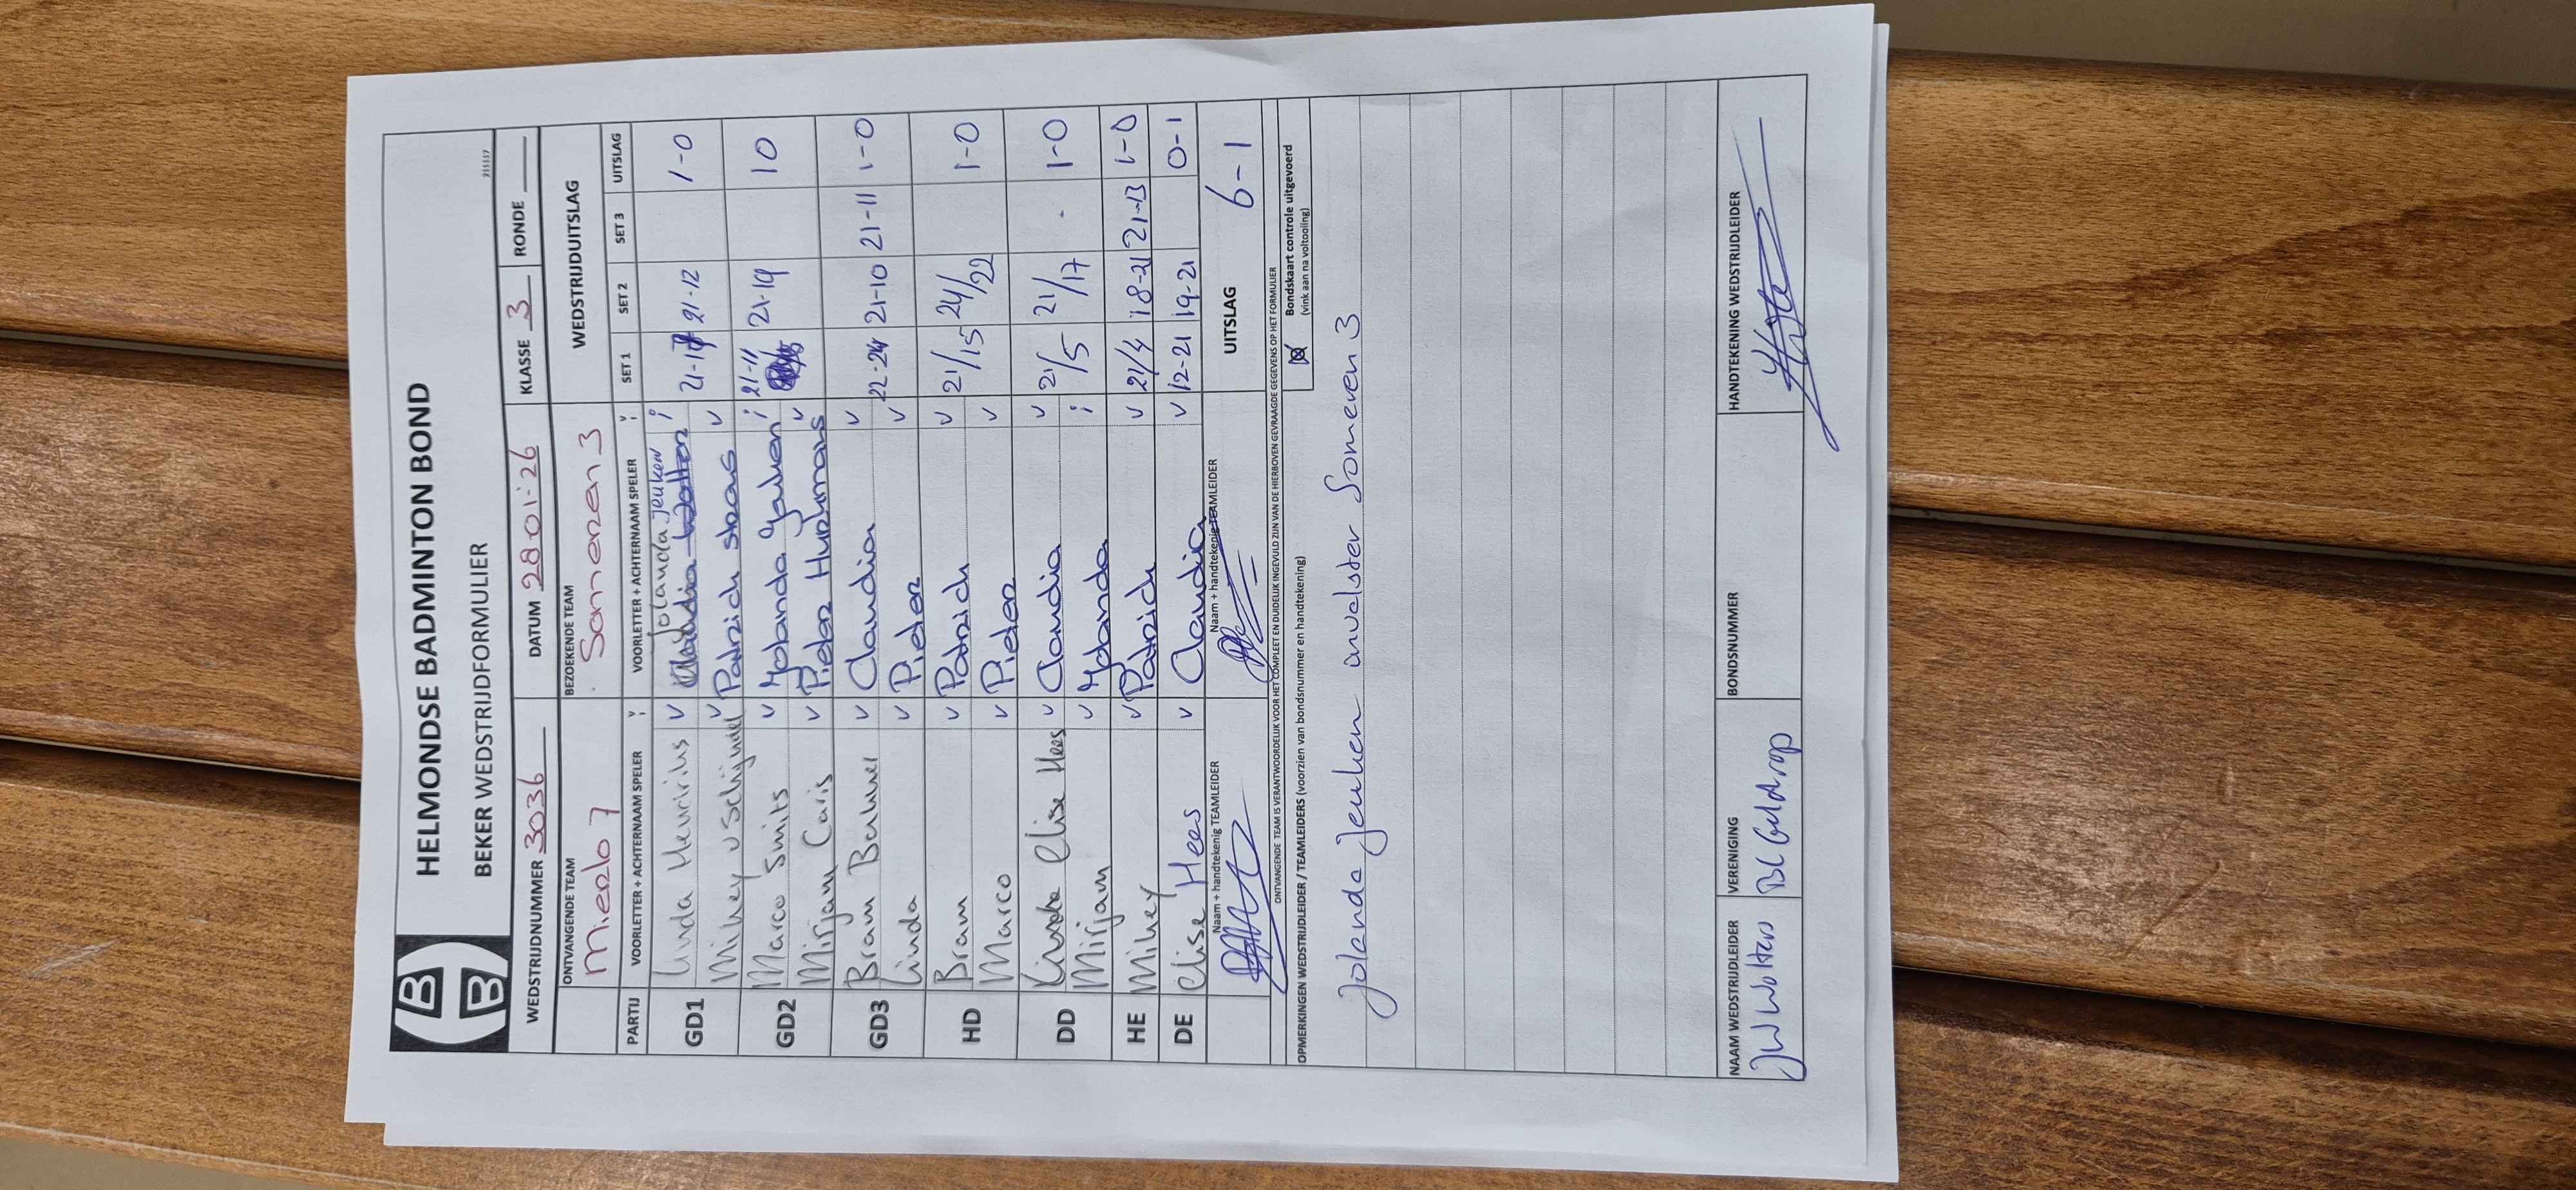 HELMONDSE BADMINTON BOND
BEKER WEDSTRIJDFORMULIER
WEDSTRIJDNUMMER 3036 DATUM 28 01-26 KLASSE 3 RONDE
ONTVANGENDE TEAM BEZOEKENDE TEAM WEDSTRIJDUITSLAG
Mierlo 7 Someren 3
PARTIJ VOORLETTER + ACHTERNAAM SPELER V i VOORLETTER + ACHTERNAAM SPELER V i SET 1 SET 2 SET 3 UITSLAG
GD1 Linda Henriks v Jolanda Jeuken i 21-17 21-12 1-0
Mikey v Schijndel v Patrick v
GD2 Marco Smits v Yolanda i 21-11 21-19 10
Mirjam Caris v Pieter v
GD3 Bram v Claudia v 22-24 21-10 21-11 1-0
Linda v Pieter v
HD Bram v Patrick v 21/15 24/22 1-0
Marco v Pieter v
DD Elise Hees v Claudia v 21/5 21/17 1-0
Mirjam v Yolanda i
HE Mikey v Patrick v 21/4 18-21 21-13 1-0
DE Elise Hees v Claudia v 12-21 19-21 0-1
Naam + handtekenig TEAMLEIDER Naam + handtekenig TEAMLEIDER UITSLAG 6-1
ONTVANGENDE TEAM IS VERANTWOORDELIJK VOOR HET COMPLEET EN DUIDELIJK INGEVULD ZIJN VAN DE HIERBOVEN GEVRAAGDE GEGEVENS OP HET FORMULIER
OPMERKINGEN WEDSTRIJDLEIDER / TEAMLEIDERS (voorzien van bondsnummer en handtekening) Bondskaart controle uitgevoerd
(vink aan na voltooiing)
Jolanda Jeuken invalster Someren 3
NAAM WEDSTRIJDLEIDER VERENIGING BONDSNUMMER HANDTEKENING WEDSTRIJDLEIDER
JW Wolters BC Geldrop